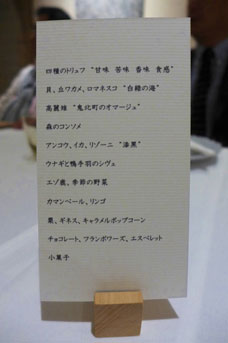 四種のトリュフ “甘味 苦味 香味 食感”
貝、立ワカメ、ロマネスコ “白緑の海”
高麗雉 “鬼北町のオマージュ”
森のコンソメ
アンコウ、イカ、リゾーニ “漆黒”
ウナギと鴨手羽のシヴェ
エゾ鹿、季節の野菜
カマンベール、リンゴ
栗、ギネス、キャラメルポップコーン
チョコレート、フランボワーズ、エスペレット
小菓子